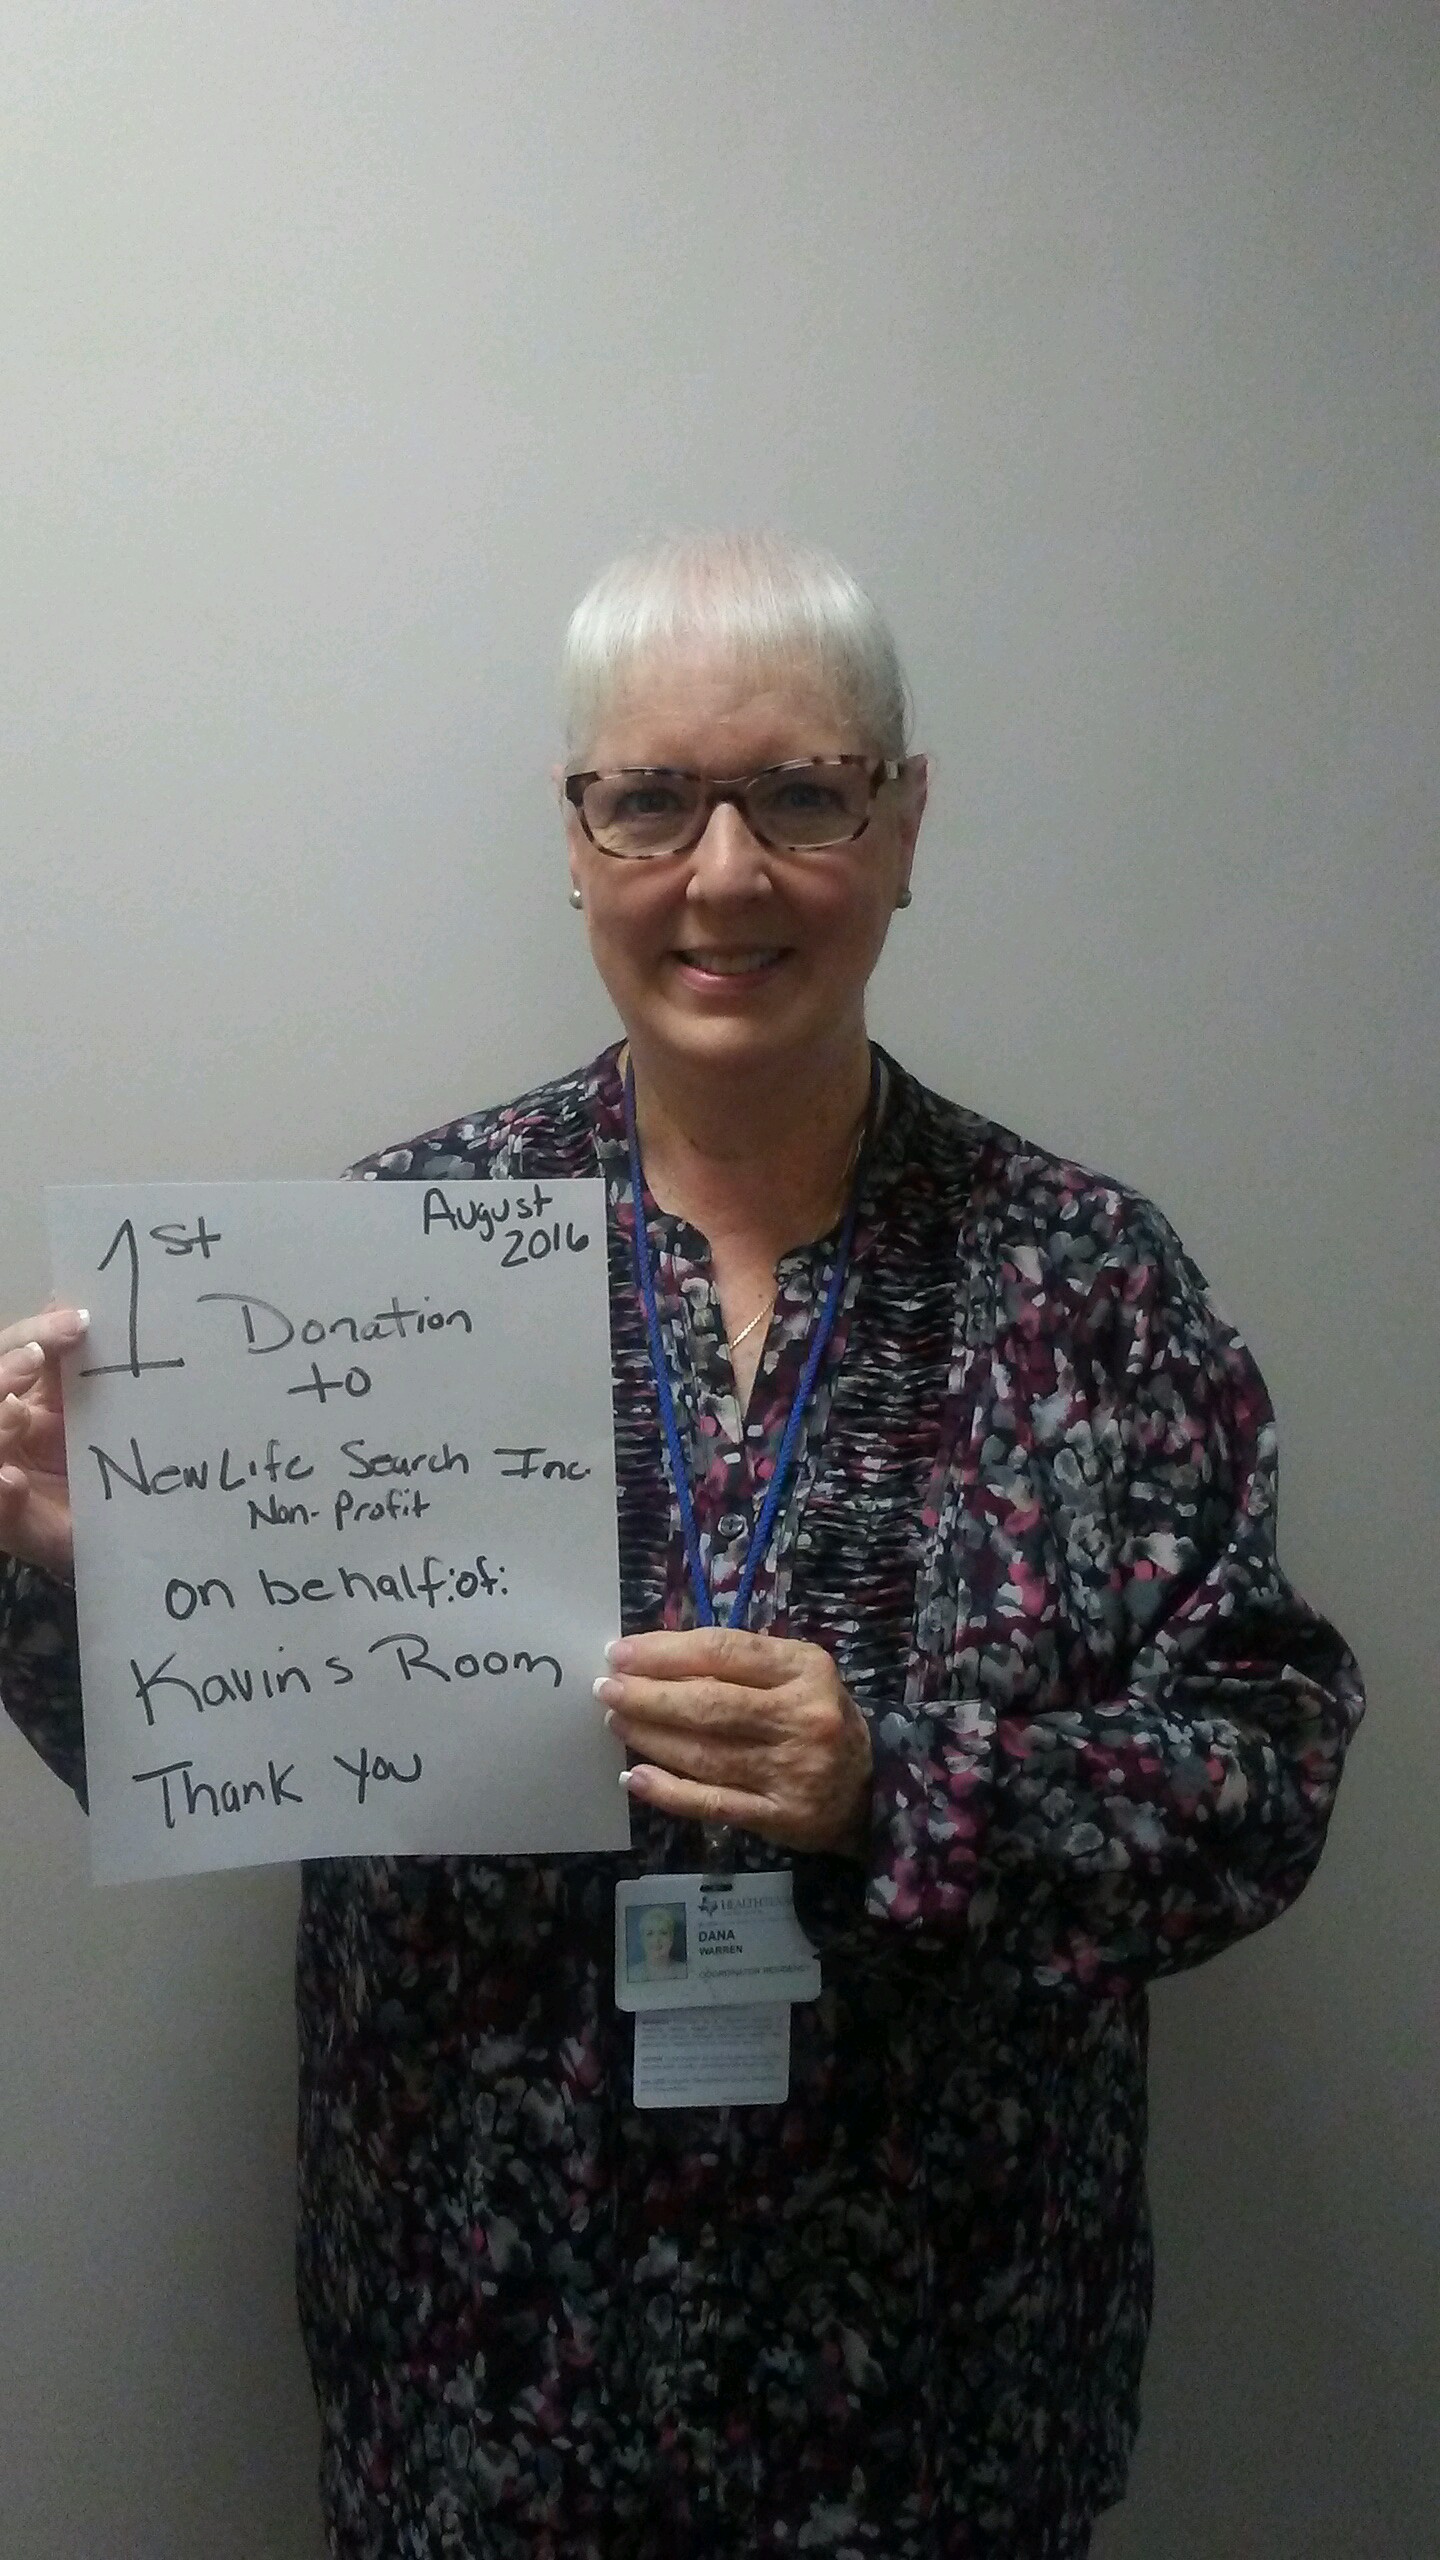 August
2016
1st
Donation
to
NewLife Search Inc.
Non-Profit
on behalf:of:
Kavins Room
Thank you
DANA
WARREN